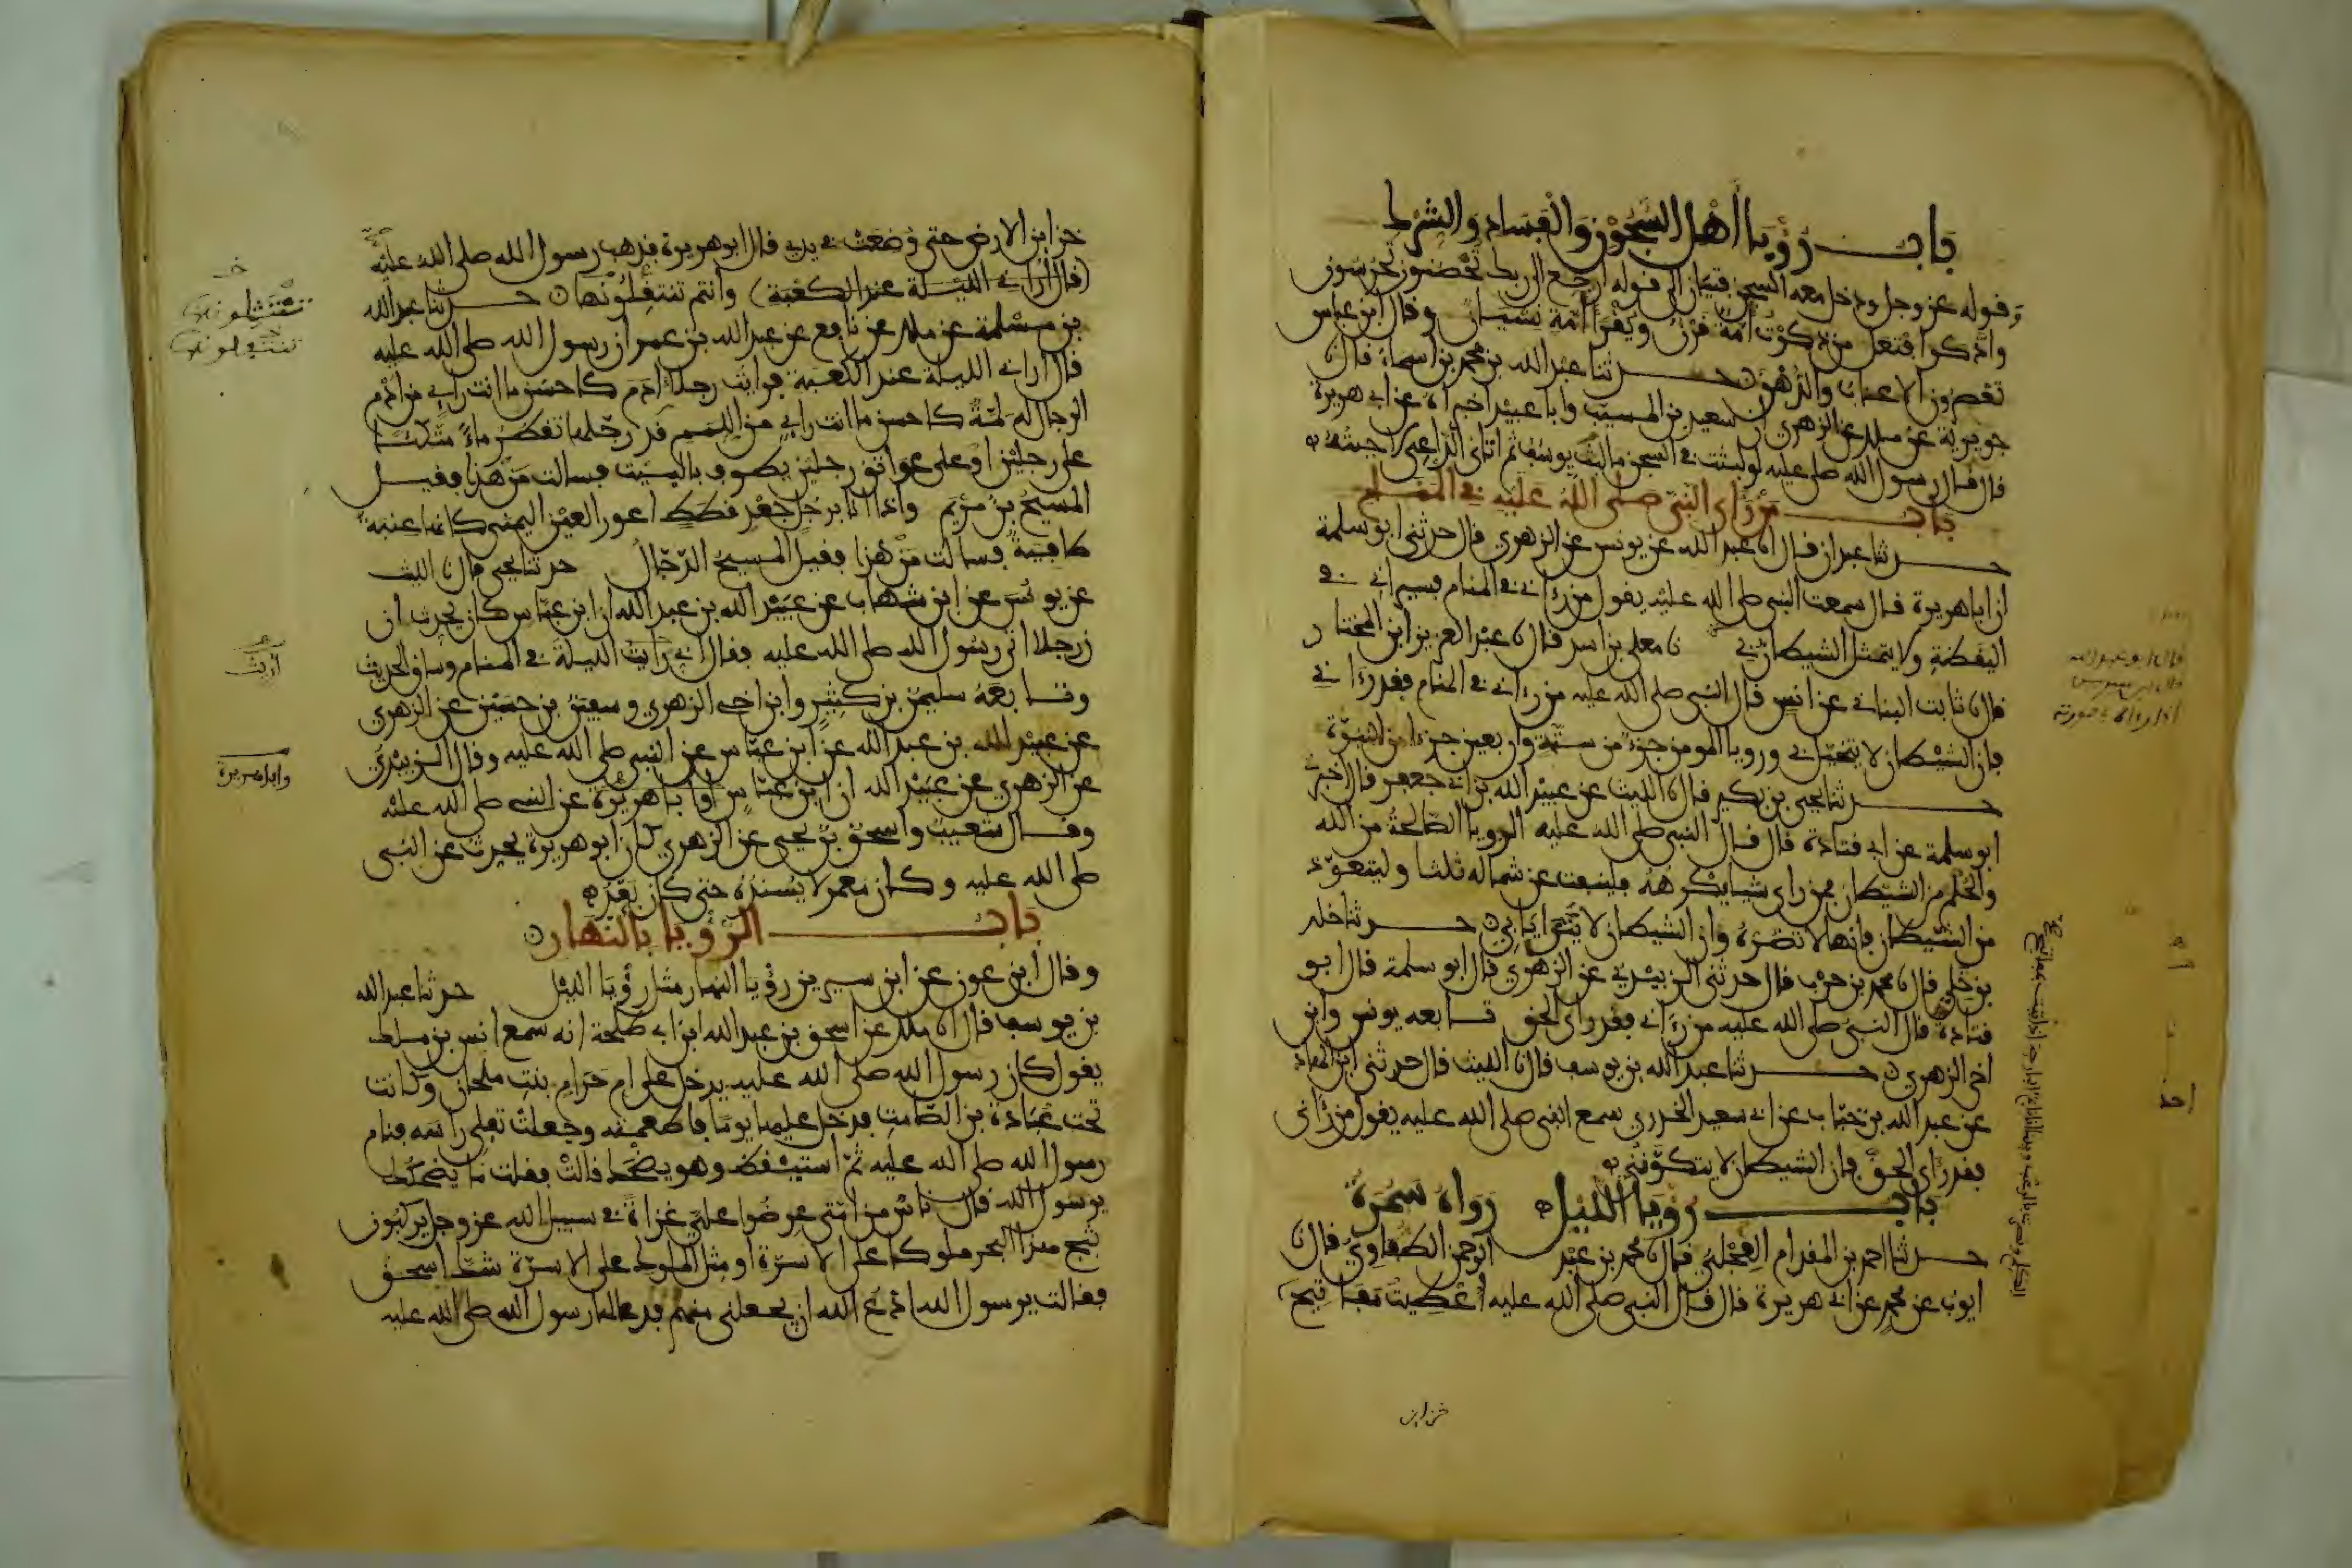 باب رؤيا أهل السجون والفساد والشرك
وقوله عز وجل ودخل معه السجن فتيان الى قوله ارجع الى ربك تحصنون تحرسون
وادكر افتعل من ذكرت أمة قرن ويقرأ أمه نسيان وقال ابن عباس
تعصرون الاعناب والدهن حدثنا عبد الله بن محمد بن اسماء قال نا
جويرية عن ملك عن الزهري ان سعيد بن المسيب وابا عبيد اخبراه عن ابي هريرة
قال قال رسول الله صلى عليه لو لبثت في السجن ما لبث يوسف ثم اتاني الداعي لاجبته
باب من رأى النبي صلى الله عليه في المنام
حدثنا عبدان قال انا عبد الله عن يونس عن الزهري قال حدثني ابو سلمة
ان ابا هريرة قال سمعت النبي صلى الله عليه يقول من رءاني في المنام فسيراني في
اليقظة ولا يتمثل الشيطان بي نا معلى بن اسد قال نا عبد العزيز ابن المختار
قال نا ثابت البناني عن انس قال النبي صلى الله عليه من رءاني في المنام فقد رءاني
فان الشيطان لا يتخيل بي ورويا المومن جزء من ستة واربعين جزءا من النبوة
حدثنا يحيى بن بكير قال نا الليث عن عبيد الله بن ابي جعفر قال اخبرني
ابو سلمة عن ابي قتادة قال قال النبي صلى الله عليه الرويا الصالحة من الله
والحلم من الشيطان فمن راى شيا يكرهه فلينفث عن شماله ثلثا وليتعوذ
من الشيطان فانها لا تضره وان الشيطان لا يتراءى بي حدثنا خلد
بن خلي قال نا محمد بن حرب قال حدثني الزبيدي عن الزهري قال ابو سلمة قال ابو
قتادة قال النبي صلى الله عليه من رءاني فقد راى الحق تابعه يونس وابن
اخي الزهري حدثنا عبد الله بن يوسف قال نا الليث قال حدثني ابن الهاد
عن عبد الله بن خباب عن ابي سعيد الخدري سمع النبي صلى الله عليه يقول من رءاني
فقد راى الحق فان الشيطان لا يتكونني
باب رؤيا الليل رواه سمرة
حدثنا احمد بن المقدام العجلي قال نا محمد بن عبد الرحمن الطفاوي قال نا
ايوب عن محمد عن ابي هريرة قال قال النبي صلى الله عليه أعطيت مفاتيح
خزاين
قال ابو عبد الله
قال ابن سيرين
اذا رءاه في صورته
خزاين الارض حتى وضعت في يدي قال ابو هريرة فذهب رسول الله صلى الله عليه
(قال أراني الليلة عند الكعبة) وانتم تنتقلونها حدثنا عبد الله
بن مسلمة عن ملك عن نافع عن عبد الله بن عمر ان رسول الله صلى الله عليه
قال اراني الليلة عند الكعبة فرايت رجلا ادم كاحسن ما انت راءي من ادم
الرجال له لمة كاحسن ما انت راءي من اللمم قد رجلها تقطر ماء متكئا
على رجلين او على عواتق رجلين يطوف بالبيت فسالت من هذا فقيل
المسيح بن مريم واذا انا برجل جعد قطط اعور العين اليمنى كانها عنبة
طافية فسالت من هذا فقيل المسيح الدجال حدثنا يحيى قال نا الليث
عن يونس عن ابن شهاب عن عبيد الله بن عبد الله ان ابن عباس كان يحدث ان
رجلا اتى رسول الله صلى الله عليه فقال اني رايت الليلة في المنام وساق الحديث
وتابعه سليمن بن كثير وابن اخي الزهري وسفين بن حسين عن الزهري
عن عبيد الله بن عبد الله عن ابن عباس عن النبي صلى الله عليه وقال الزبيدي
عن الزهري عن عبيد الله ان ابن عباس او ابا هريرة عن النبي صلى الله عليه
وقال شعيب واسحق بن يحيى عن الزهري كان ابو هريرة يحدث عن النبي
صلى الله عليه وكان معمر لا يسنده حتى كان بعد
باب الرؤيا بالنهار
وقال ابن عون عن ابن سيرين رؤيا النهار مثل رؤيا الليل حدثنا عبد الله
بن يوسف قال انا ملك عن اسحق بن عبد الله ابن ابي طلحة انه سمع انس بن ملك
يقول كان رسول الله صلى الله عليه يدخل على ام حرام بنت ملحان وكانت
تحت عبادة بن الصامت فدخل عليها يوما فاطعمته وجعلت تفلي راسه فنام
رسول الله صلى الله عليه ثم استيقظ وهو يضحك قالت فقلت ما يضحكك
يرسول الله قال ناس من امتي عرضوا علي غزاة في سبيل الله عز وجل يركبون
ثبج هذا البحر ملوكا على الاسرة او مثل الملوك على الاسرة شك اسحق
فقالت يرسول الله ادع الله ان يجعلني منهم فدعا لها رسول الله صلى الله عليه
تنتثلونها
تنتقلونها
أريت
وابا هريرة